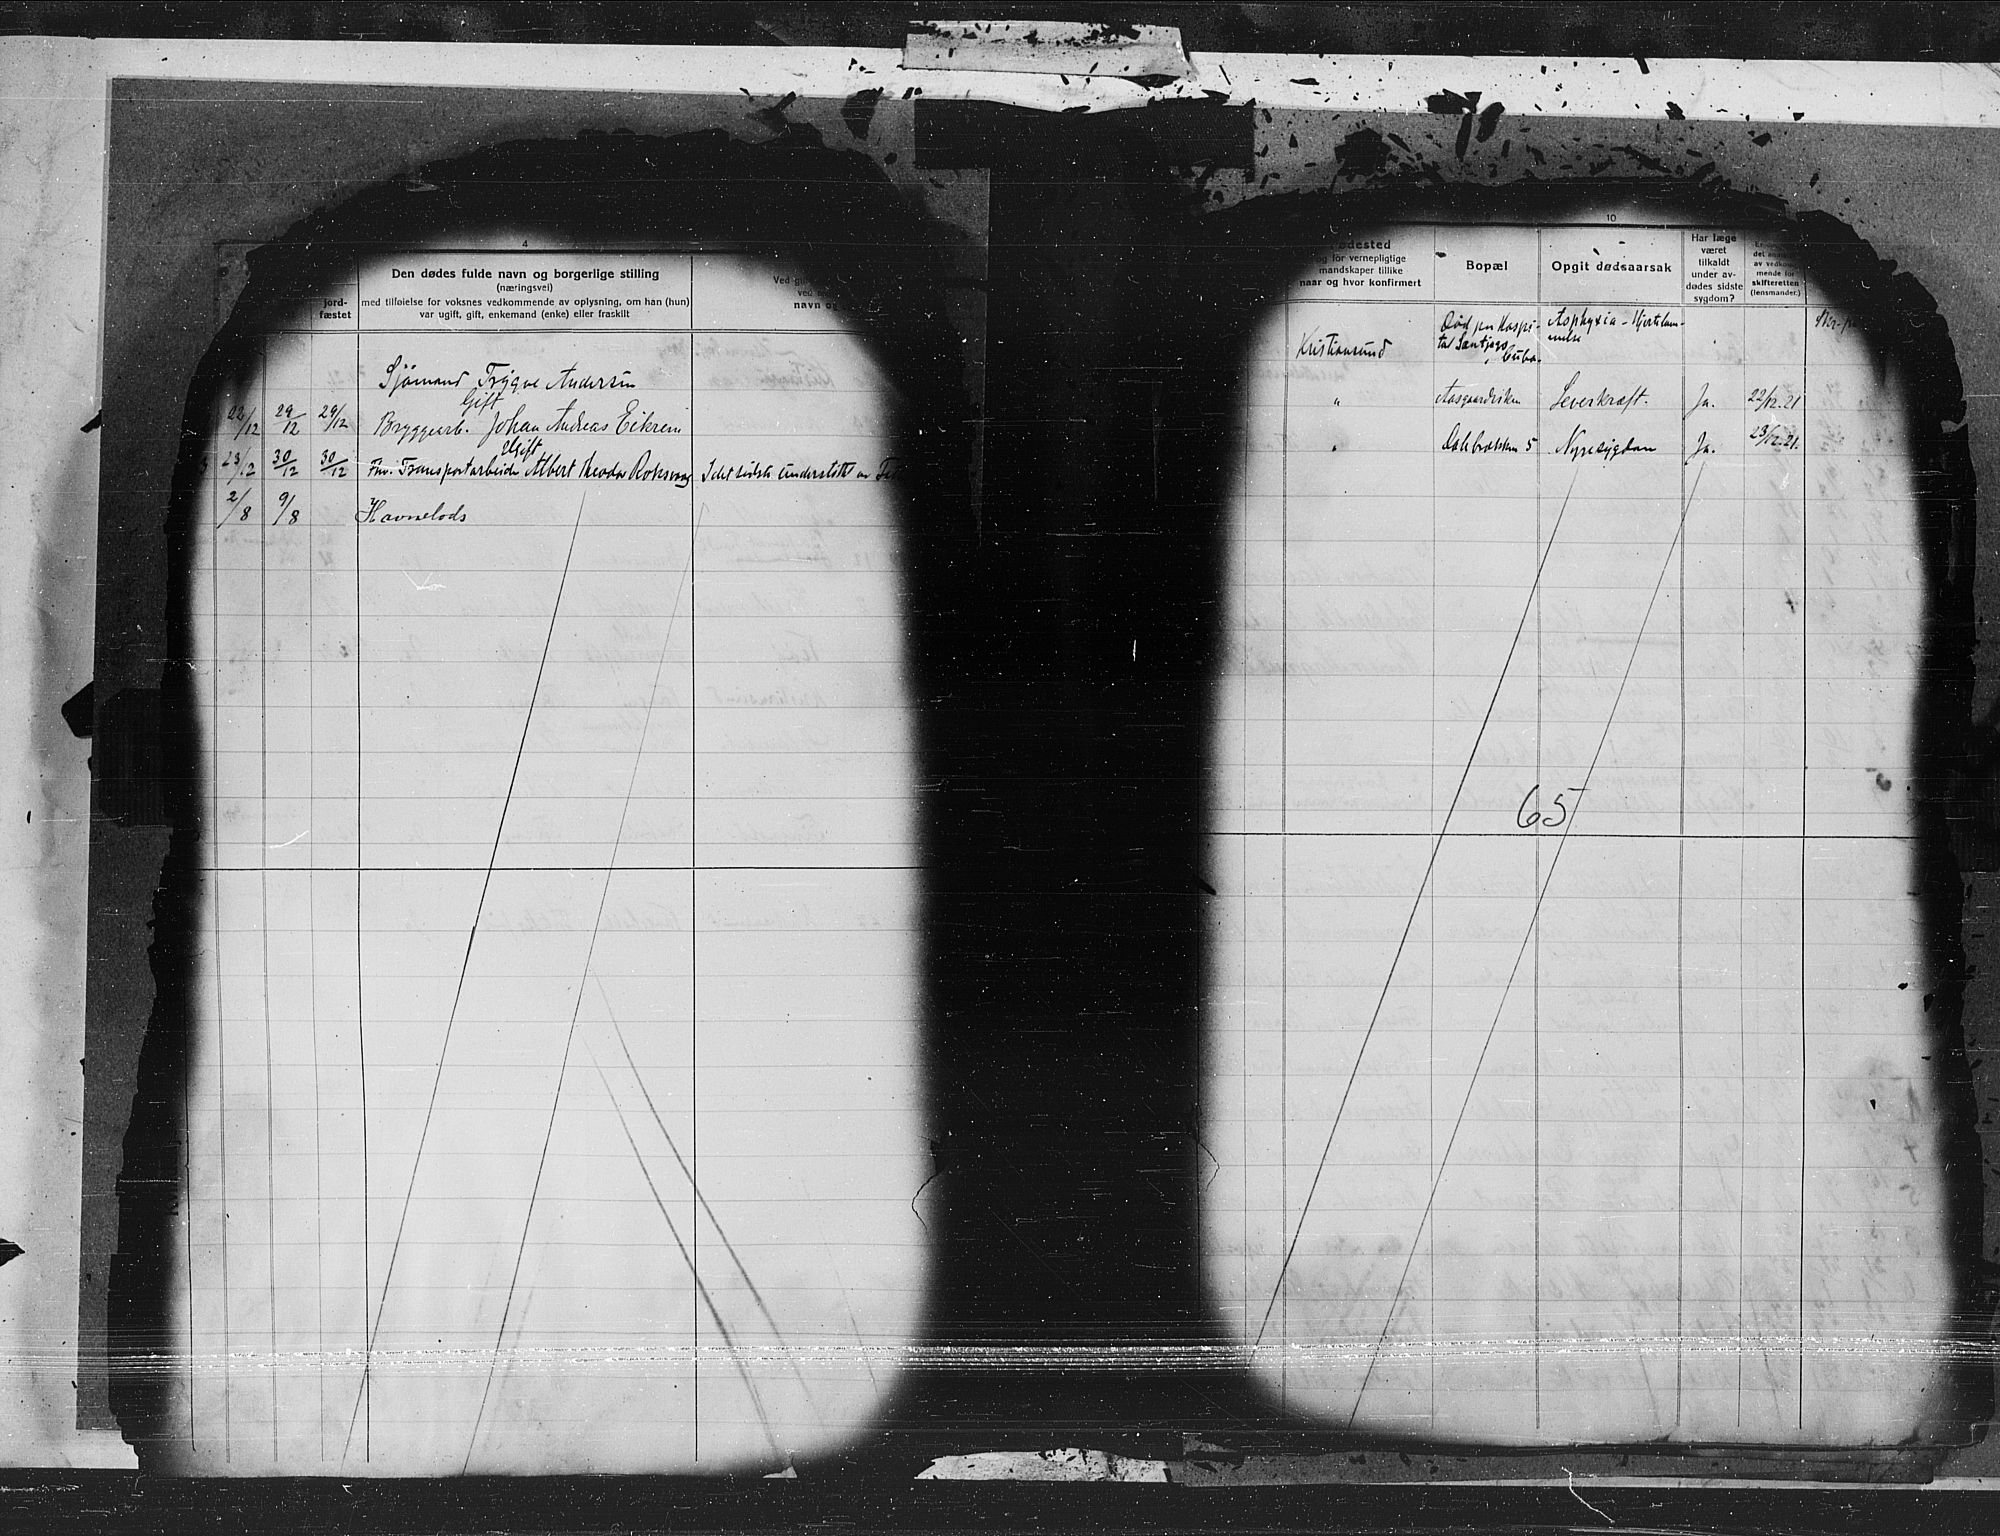 4
Den dødes fulde navn og borgerlige stilling
(næringsvei)
med tilføielse for voksnes vedkommende av oplysning, om han (hun)
var ugift, gift, enkemand (enke) eller fraskilt
jord-
fæstet
Ved
navn
Sjömand Trygve Andersen
Gift
22/12 29/12 29/12 Bryggearb. Johan Andreas Eikrem
Ugift
23/12 30/12 30/12 Fhv. Transportarbeider Albert Theodor Roksvaag I det sidste understöttet av
2/8 9/8 Havnelods
10
ødested
og for vernepligtige
mandskaper tillike
naar og hvor konfirmert
Bopæl
Opgit dødsaarsak
Har læge
været
tilkaldt
under av-
dødes sidste
sygdom?
Er
det anmeldt
av vedkom-
mende for
skifteretten
(lensmanden)
Kristiansund Död paa Hospi- Asphyxia - Hjertelam-
tal Santjago melse
Cuba.
" Aasgaardveien Leverkræft. Ja. 22/12.21
" Dalebrekken 5 Nyresygdom Ja. 23/12.21.
65